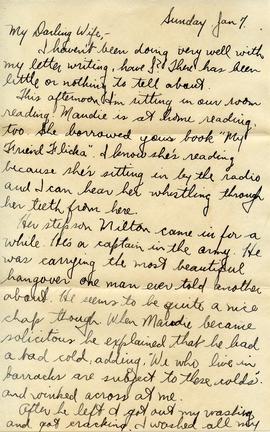 Sunday Jan 7.
My Darling Wife,-
I haven't been doing very well with
my letter writing, have I? There has been
little or nothing to tell about.
This afternoon I'm sitting in our room
reading. Maudie is at home reading,
too. She borrowed your book "My
Friend Flicka". I know she's reading
because she's sitting in by the radio
and I can hear her whistling through
her teeth from here.
Her stepson Milton came in for a
while. He's a captain in the army. He
was carrying the most beautiful
hangover one man ever told another
about. He seems to be quite a nice
chap though. When Maudie became
solicitous he explained that he had
a bad cold, adding, "We who live in
barracks are subject to these colds".
and winked across at me.
After he left I got out my washing
and got cracking. I washed all my